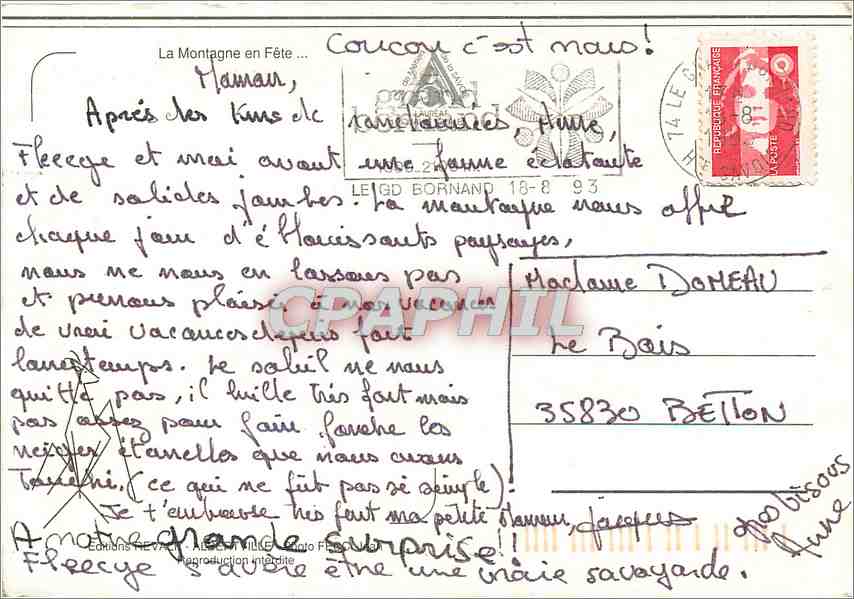 La Montagne en Fête ...
Coucou c'est nous !
Maman,
Après des Kms de
randonnées, Anne,
Fleecye et moi avont une forme éclatante
et de solides jambes. La montagne nous offre
chaque jour d'éblouissants paysages,
nous ne nous en lassons pas
et prenons plaisir à nos vacances
de vrai vacances depuis fort
longtemps. Le soleil ne nous
quitte pas, il brille très fort mais
pas assez pour faire fondre les
neiges éternelles que nous avons
Touché. (ce qui ne fût pas si simple).
Je t'embrasse très fort ma petite Maman, Jacques
A notre grande surprise !!
Fleecye s'avère être une vraie savoyarde.
gros bisous
Anne
Madame DOMEAU
Le Bois
35830 BETTON
LE GD BORNAND 18-8 93
74 LE G
RÉPUBLIQUE FRANÇAISE
LA POSTE
LAURÉAT
Editions REVACL - ALBERTVILLE - Photo
Reproduction interdite
CPAPHIL